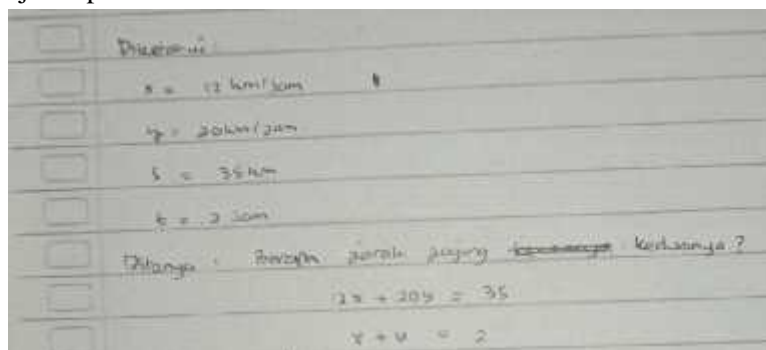 Diketahui :
x = 12 km/jam
y = 20km/jam
s = 35 km
t = 2 jam
Ditanya : Berapa jarak keduanya?
12x + 20y = 35
x + y = 2